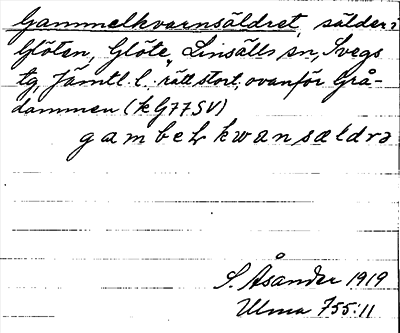 Gammelkvarnsäldret, sälder i
Glöten, Glöte, Linsälls sn, Svegs
tg, Jämtl. l. rätt stort, ovanför Grå-
dammen (k G77 SV)
gambelkwansældrə
S. Åsander 1919
Ulma 755:11